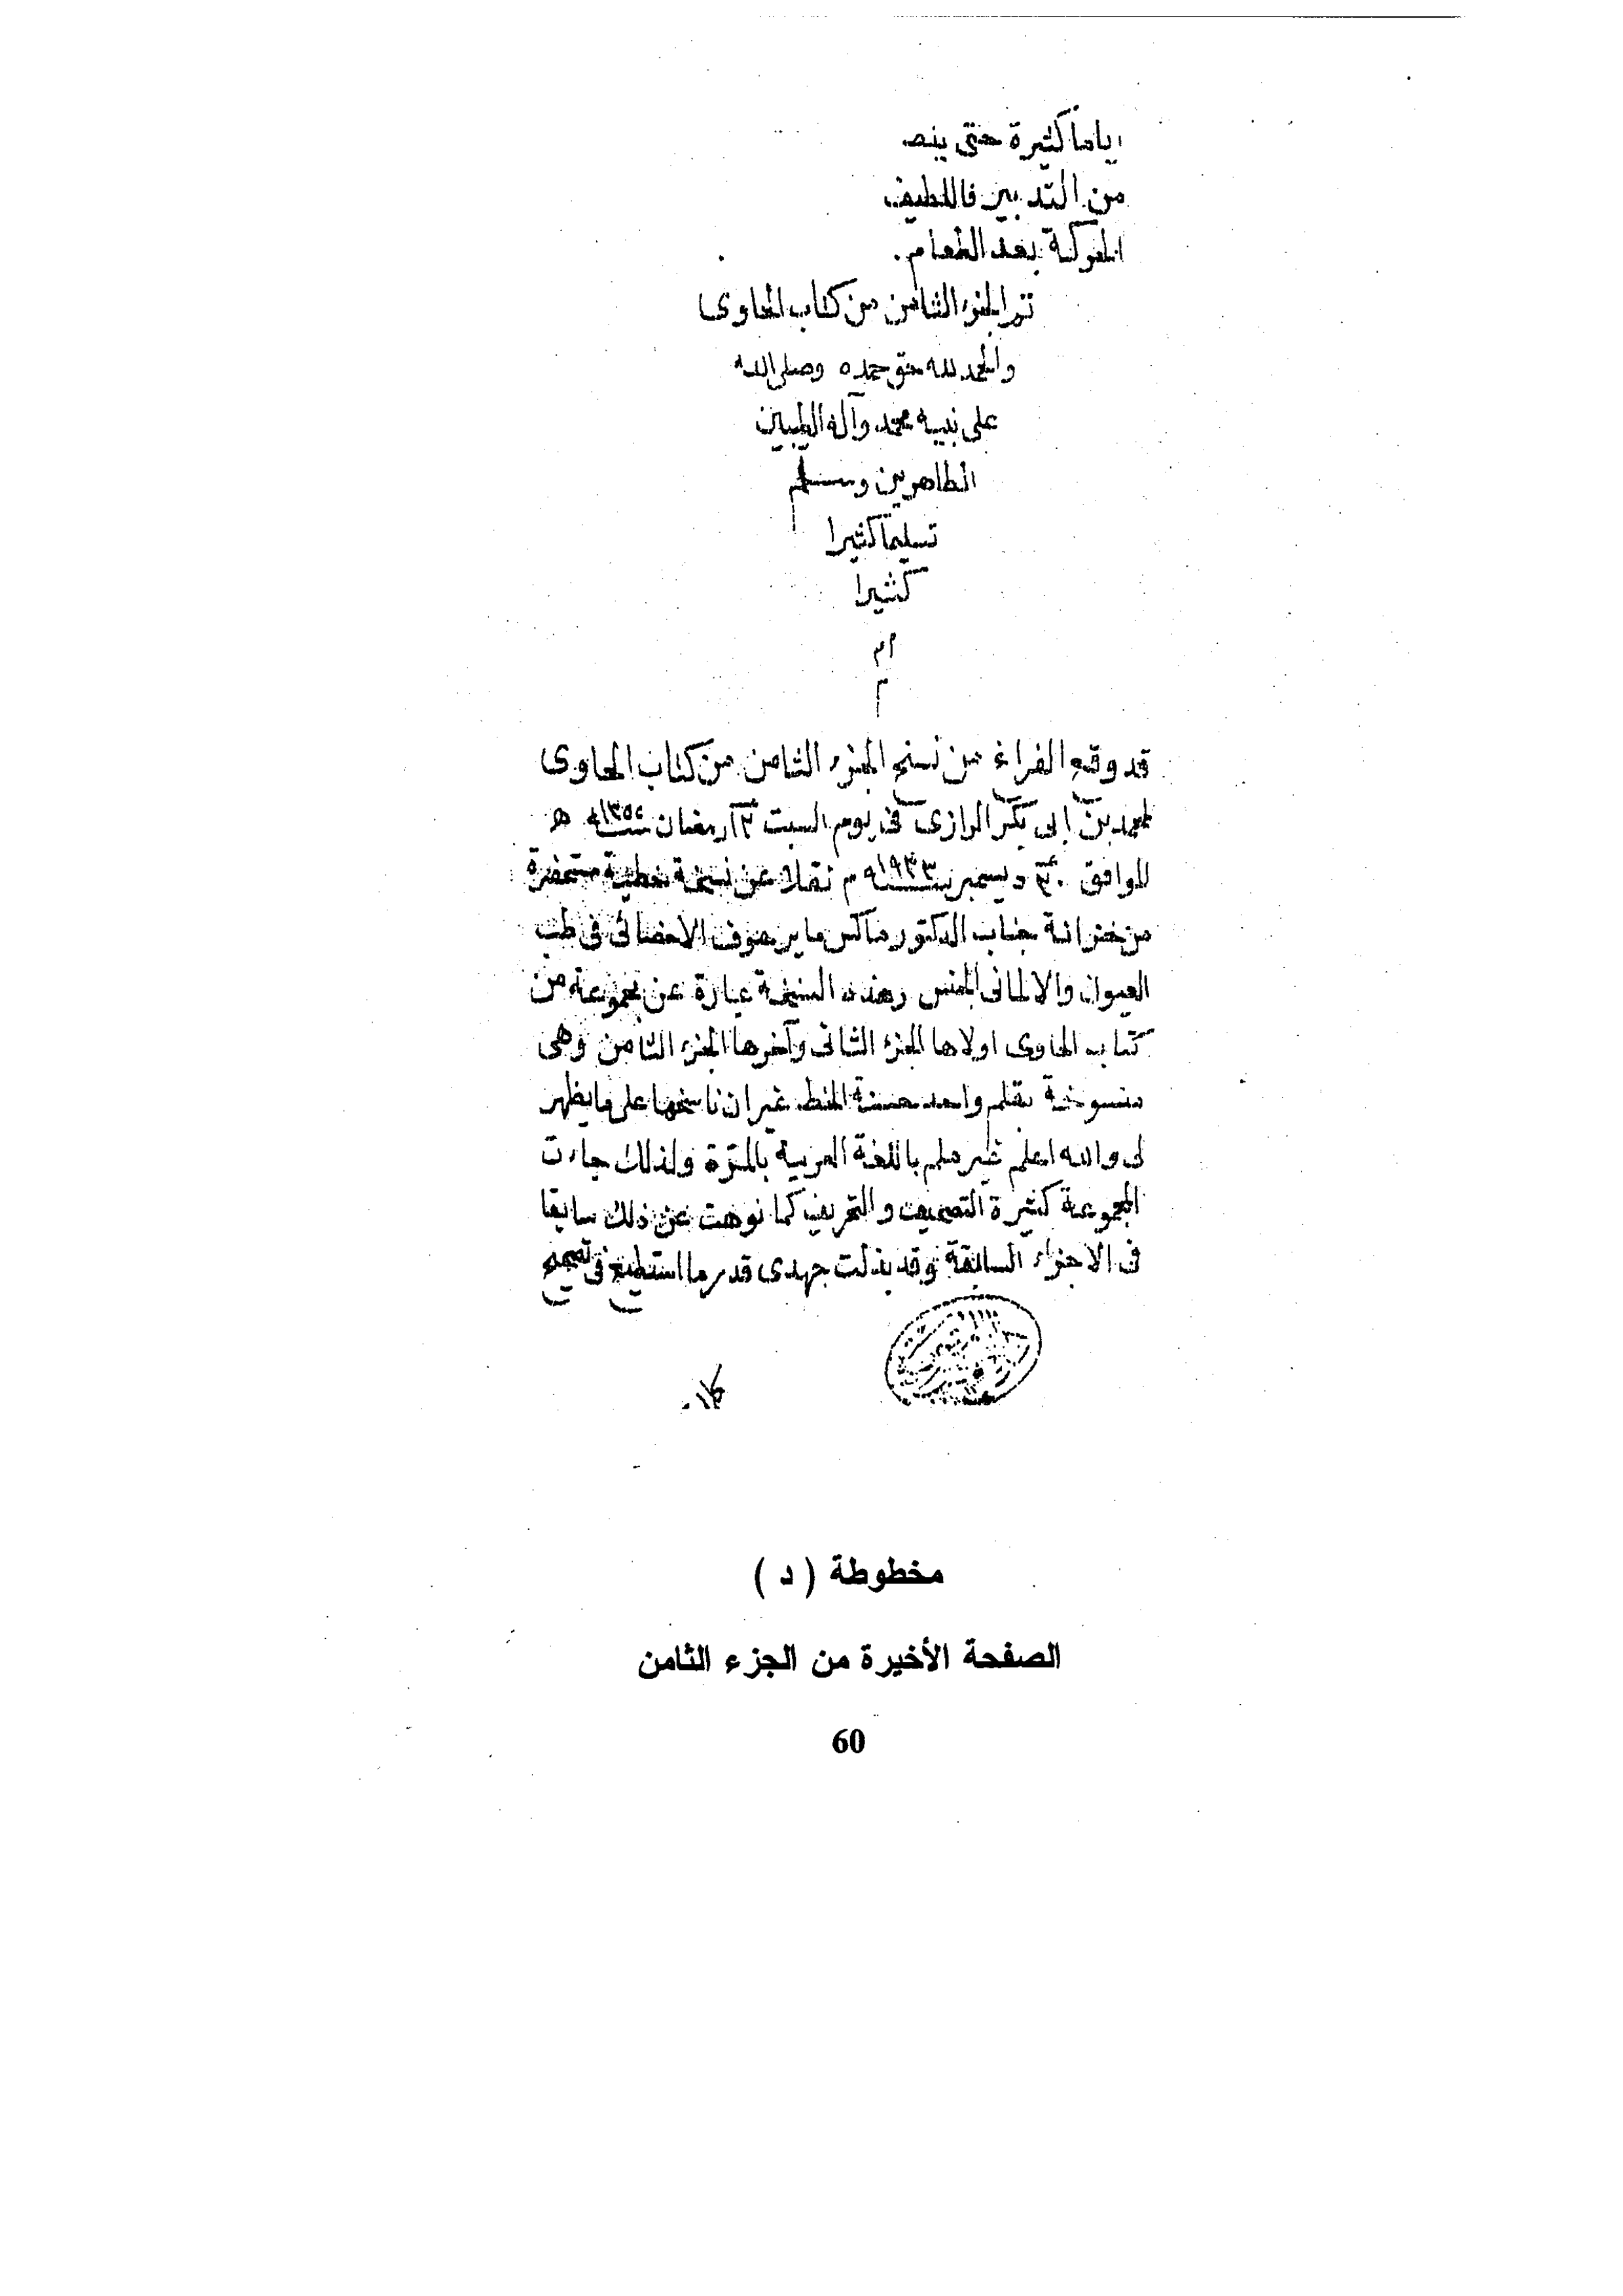 اياما كثيرة حتى ينصـ
من التدبير فاللطيف
الحركة بعد الطعام.
تم الجزء الثامن من كتاب الحاوى
والحمد لله حق حمده وصلى الله
على نبيه محمد وآله الطيبين
الطاهرين وسلم
تسليما كثيرا
كثيرا
قد وقع الفراغ من نسخ الجزء الثامن من كتاب الحاوى
لمحمد بن ابى بكر الرازى فى يوم السبت رمضان سنة ١٣٥٢ هـ
الموافق ٣٠ ديسمبر سنة ١٩٣٣ م نقلا عن نسخة خطية مستحضرة
من خزانة جناب الدكتور ماكس مايرهوف الاخصائى فى طب
العيون والالمانى الجنس وهذه النسخة عبارة عن مجموعة من
كتاب الحاوى اولاها الجزء الثانى وآخرها الجزء الثامن وهى
منسوخة بقلم واحد حسنة الخط غير ان ناسخها على ما يظهر
لى والله اعلم غير ملم باللغة العربية بالمرة ولذلك جاءت
المجموعة كثيرة التصحيف والتحريف كما نوهت عن ذلك سابقا
فى الاجزاء السابقة وقد بذلت جهدى قدر ما استطيع فى تصحيح
مخطوطة ( د )
الصفحة الأخيرة من الجزء الثامن
60